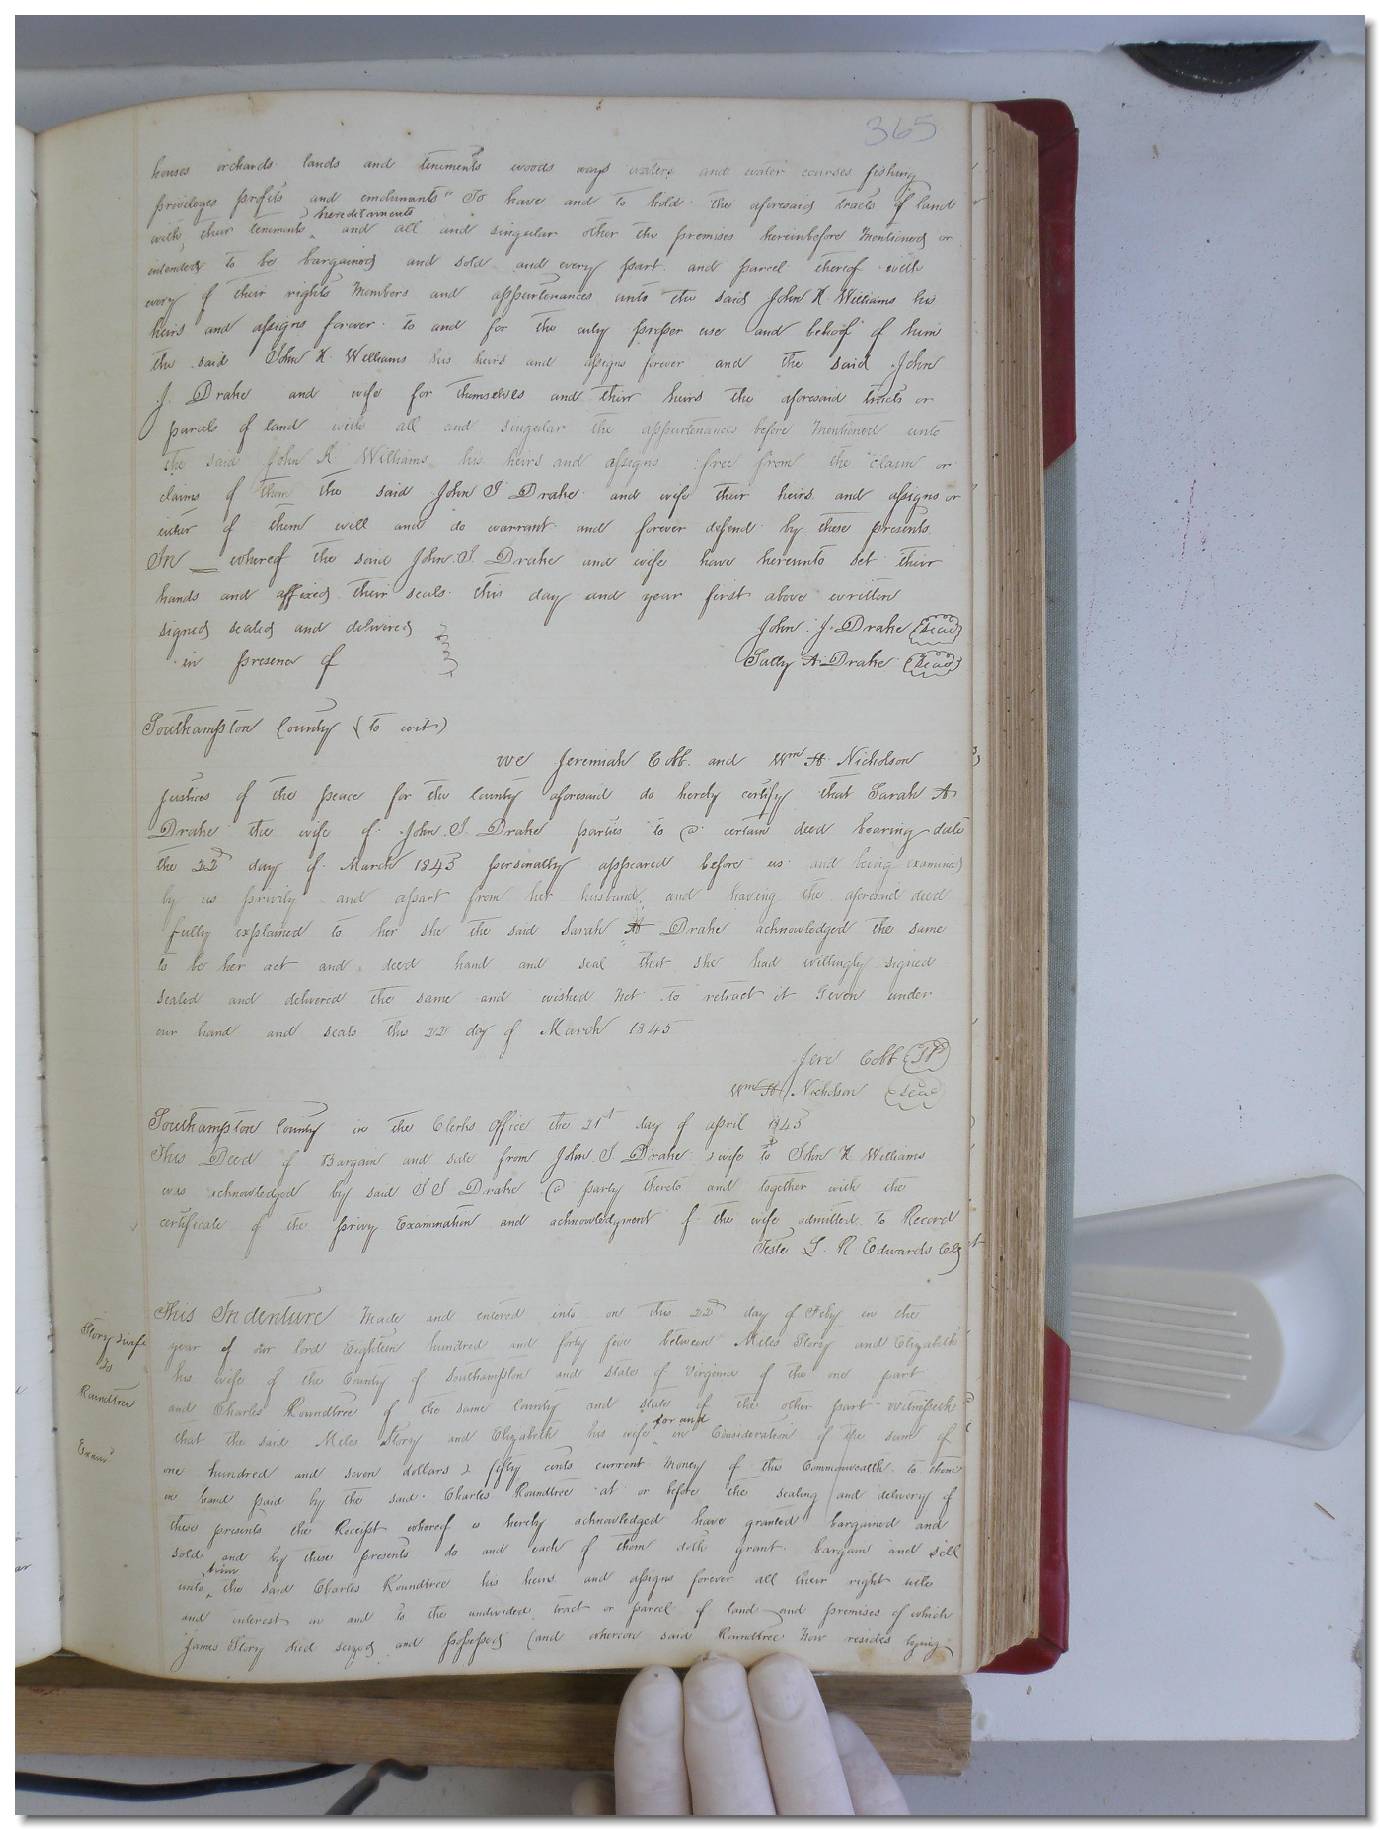 365
houses orchards lands and tenements woods ways waters and water courses fishing
privileges profits and emoluments" To have and to hold the aforesaid tracts of land
hereditaments
with their tenements and all and singular other the premises hereinbefore Mentioned or
intended to be bargained and sold and every part and parcel thereof with
every of their rights Members and appurtenances unto the said John K Williams his
heirs and assigns forever to and for the only proper use and behoof of him
the said John K Williams his heirs and assigns forever and the said John
J. Drake and wife for themselves and their heirs the aforesaid tracts or
parcels of land with all and singular the appurtenances before Mentioned unto
the said John K Williams his heirs and assigns free from the claim or
claims of them the said John J Drake and wife their heirs and assigns or
either of them will and do warrant and forever defend by these presents
In __ whereof the said John J. Drake and wife have hereunto set their
hands and affixed their seals this day and year first above written
signed sealed and delivered
John J. Drake (seal)
in presence of
Sally A. Drake (seal)
Southampton County (to wit)
We Jeremiah Cobb and Wm H Nicholson
Justices of the peace for the County aforesaid do hereby certify that Sarah A
Drake the wife of John J. Drake parties to a certain deed bearing date
the 22d day of March 1843 personally appeared before us and being examined
by us privily and apart from her husband and having the aforesaid deed
fully explained to her she the said Sarah A Drake acknowledged the same
to be her act and deed hand and seal that she had willingly signed
sealed and delivered the same and wished Not to retract it Given under
our hand and seals this 22 day of March 1845
Jere Cobb (JP)
Wm H Nicholson (seal)
Southampton County in the Clerks Office the 21st day of april 1845
This Deed of Bargain and sale from John J. Drake & wife to John K Williams
was acknowledged by said J J Drake a party thereto and together with the
certificate of the privy Examination and acknowledgment of the wife admitted to Record
Teste L. R Edwards Clk
Story & wife
to
Roundtree
Exam'd
This Indenture Made and entered into on this 22d day of Feby in the
year of our lord Eighteen hundred and forty five between Miles Story and Elizabeth
his wife of the County of Southampton and state of Virginia of the one part
and Charles Roundtree of the same County and state of the other part witnesseth
for and
that the said Miles Story and Elizabeth his wife in Consideration of the sum of
one hundred and seven dollars & fifty cents current Money of this Commonwealth to them
in hand paid by the said Charles Roundtree at or before the sealing and delivery of
these presents the Receipt whereof is hereby acknowledged have granted bargained and
sold and by these presents do and each of them doth grant bargain and sell
him
unto the said Charles Roundtree his heirs and assigns forever all their right title
and interest in and to the undivided tract or parcel of land and premises of which
James Story died seized and possessed (and whereon said Roundtree Now resides lying